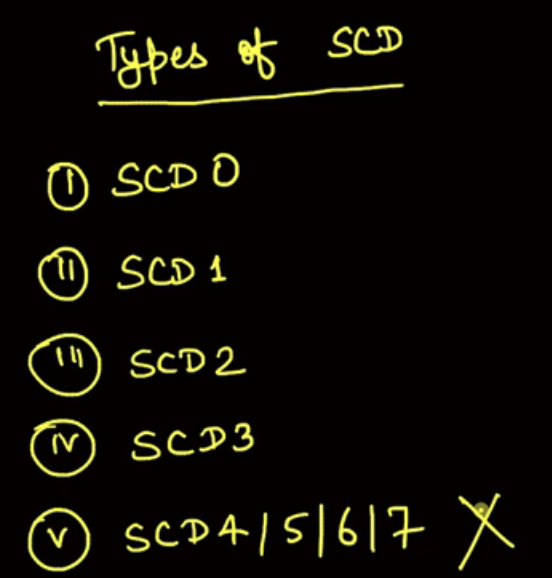 Types of SCD
I SCD 0
II SCD 1
III SCD 2
IV SCD 3
V SCD 4/5/6/7 X